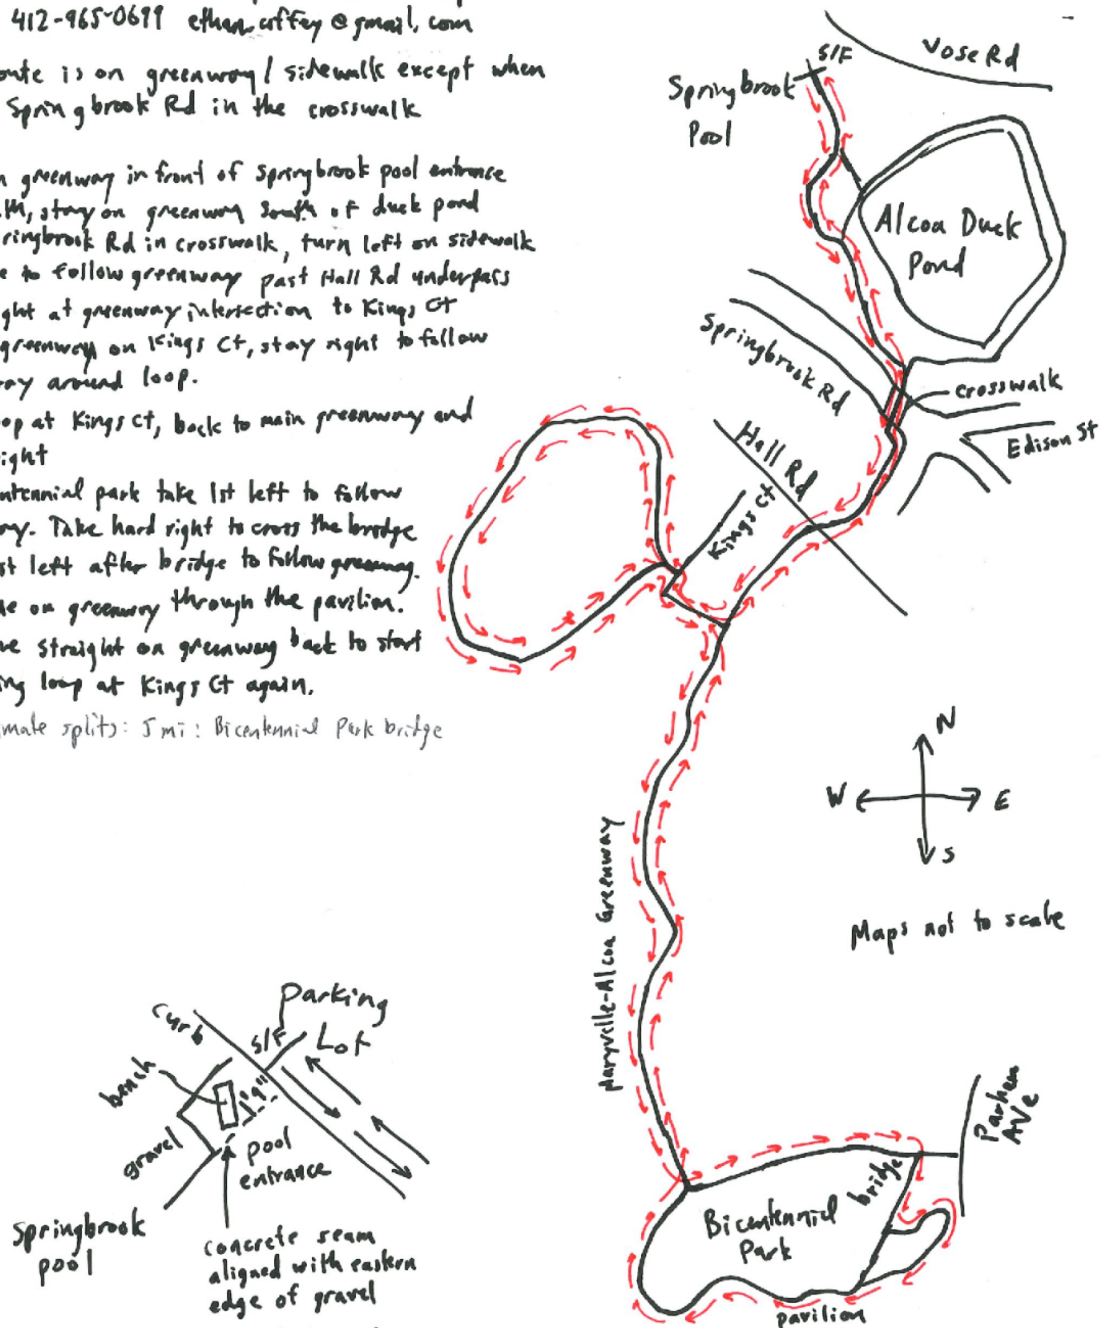 412-965-0699 ethan.coffey@gmail.com
oute is on greenway/sidewalk except when
Springbrook Rd in the crosswalk
n greenway in front of Springbrook pool entrance
th, stay on greenway South of duck pond
ringbrook Rd in crosswalk, turn left on sidewalk
e to follow greenway past Hall Rd underpass
ght at greenway intersection to Kings Ct
greenway on Kings Ct, stay right to follow
ay around loop.
op at Kings Ct, back to main greenway and
ight
ntennial park take 1st left to follow
ay. Take hard right to cross the bridge
st left after bridge to follow greenway.
ue on greenway through the pavilion.
ue straight on greenway back to start
ing loop at Kings Ct again.
mate splits: 5 mi: Bicentennial Park bridge
S/F
Vose Rd
Springbrook
Pool
Alcoa Duck
Pond
Springbrook Rd
crosswalk
Edison St
Hall Rd
Kings Ct
N
W E
S
Maryville-Alcoa Greenway
Maps not to scale
Parham
Ave
bridge
Bicentennial
Park
pavilion
Parking
Lot
curb
S/F
bench
1'9"
gravel
pool
entrance
Springbrook
pool
concrete seam
aligned with eastern
edge of gravel